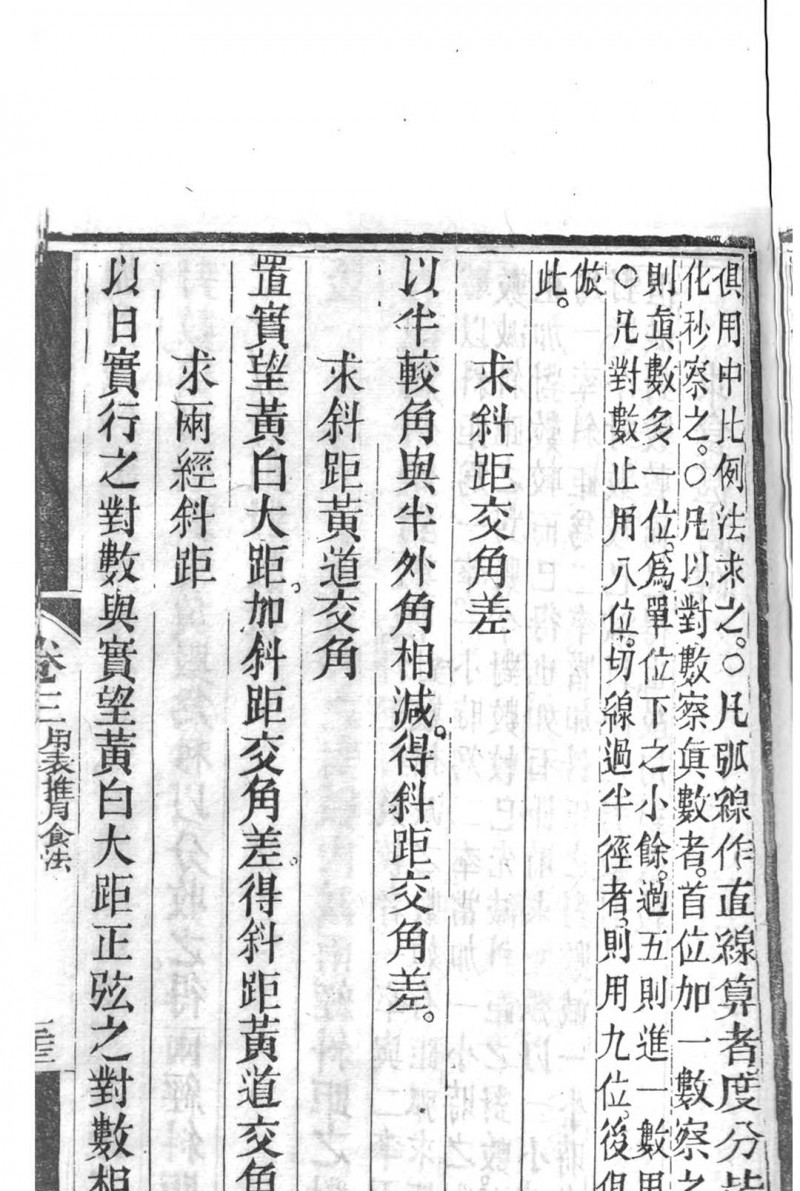 俱用中比例法求之。○凡弧線作直線算者度分皆
化秒察之。○凡以對數察眞數者。首位加一數察之
則眞數多一位。爲單位下之小餘。過五則進一數用
○凡對數止用八位。切線過半徑者。則用九位。後俱
倣
此。
求斜距交角差
以半較角與半外角相減。得斜距交角差。
求斜距黃道交角
置實望黃白大距。加斜距交角差。得斜距黃道交角
求兩經斜距
以日實行之對數與實望黃白大距正弦之對數相
卷三
用表推月食法